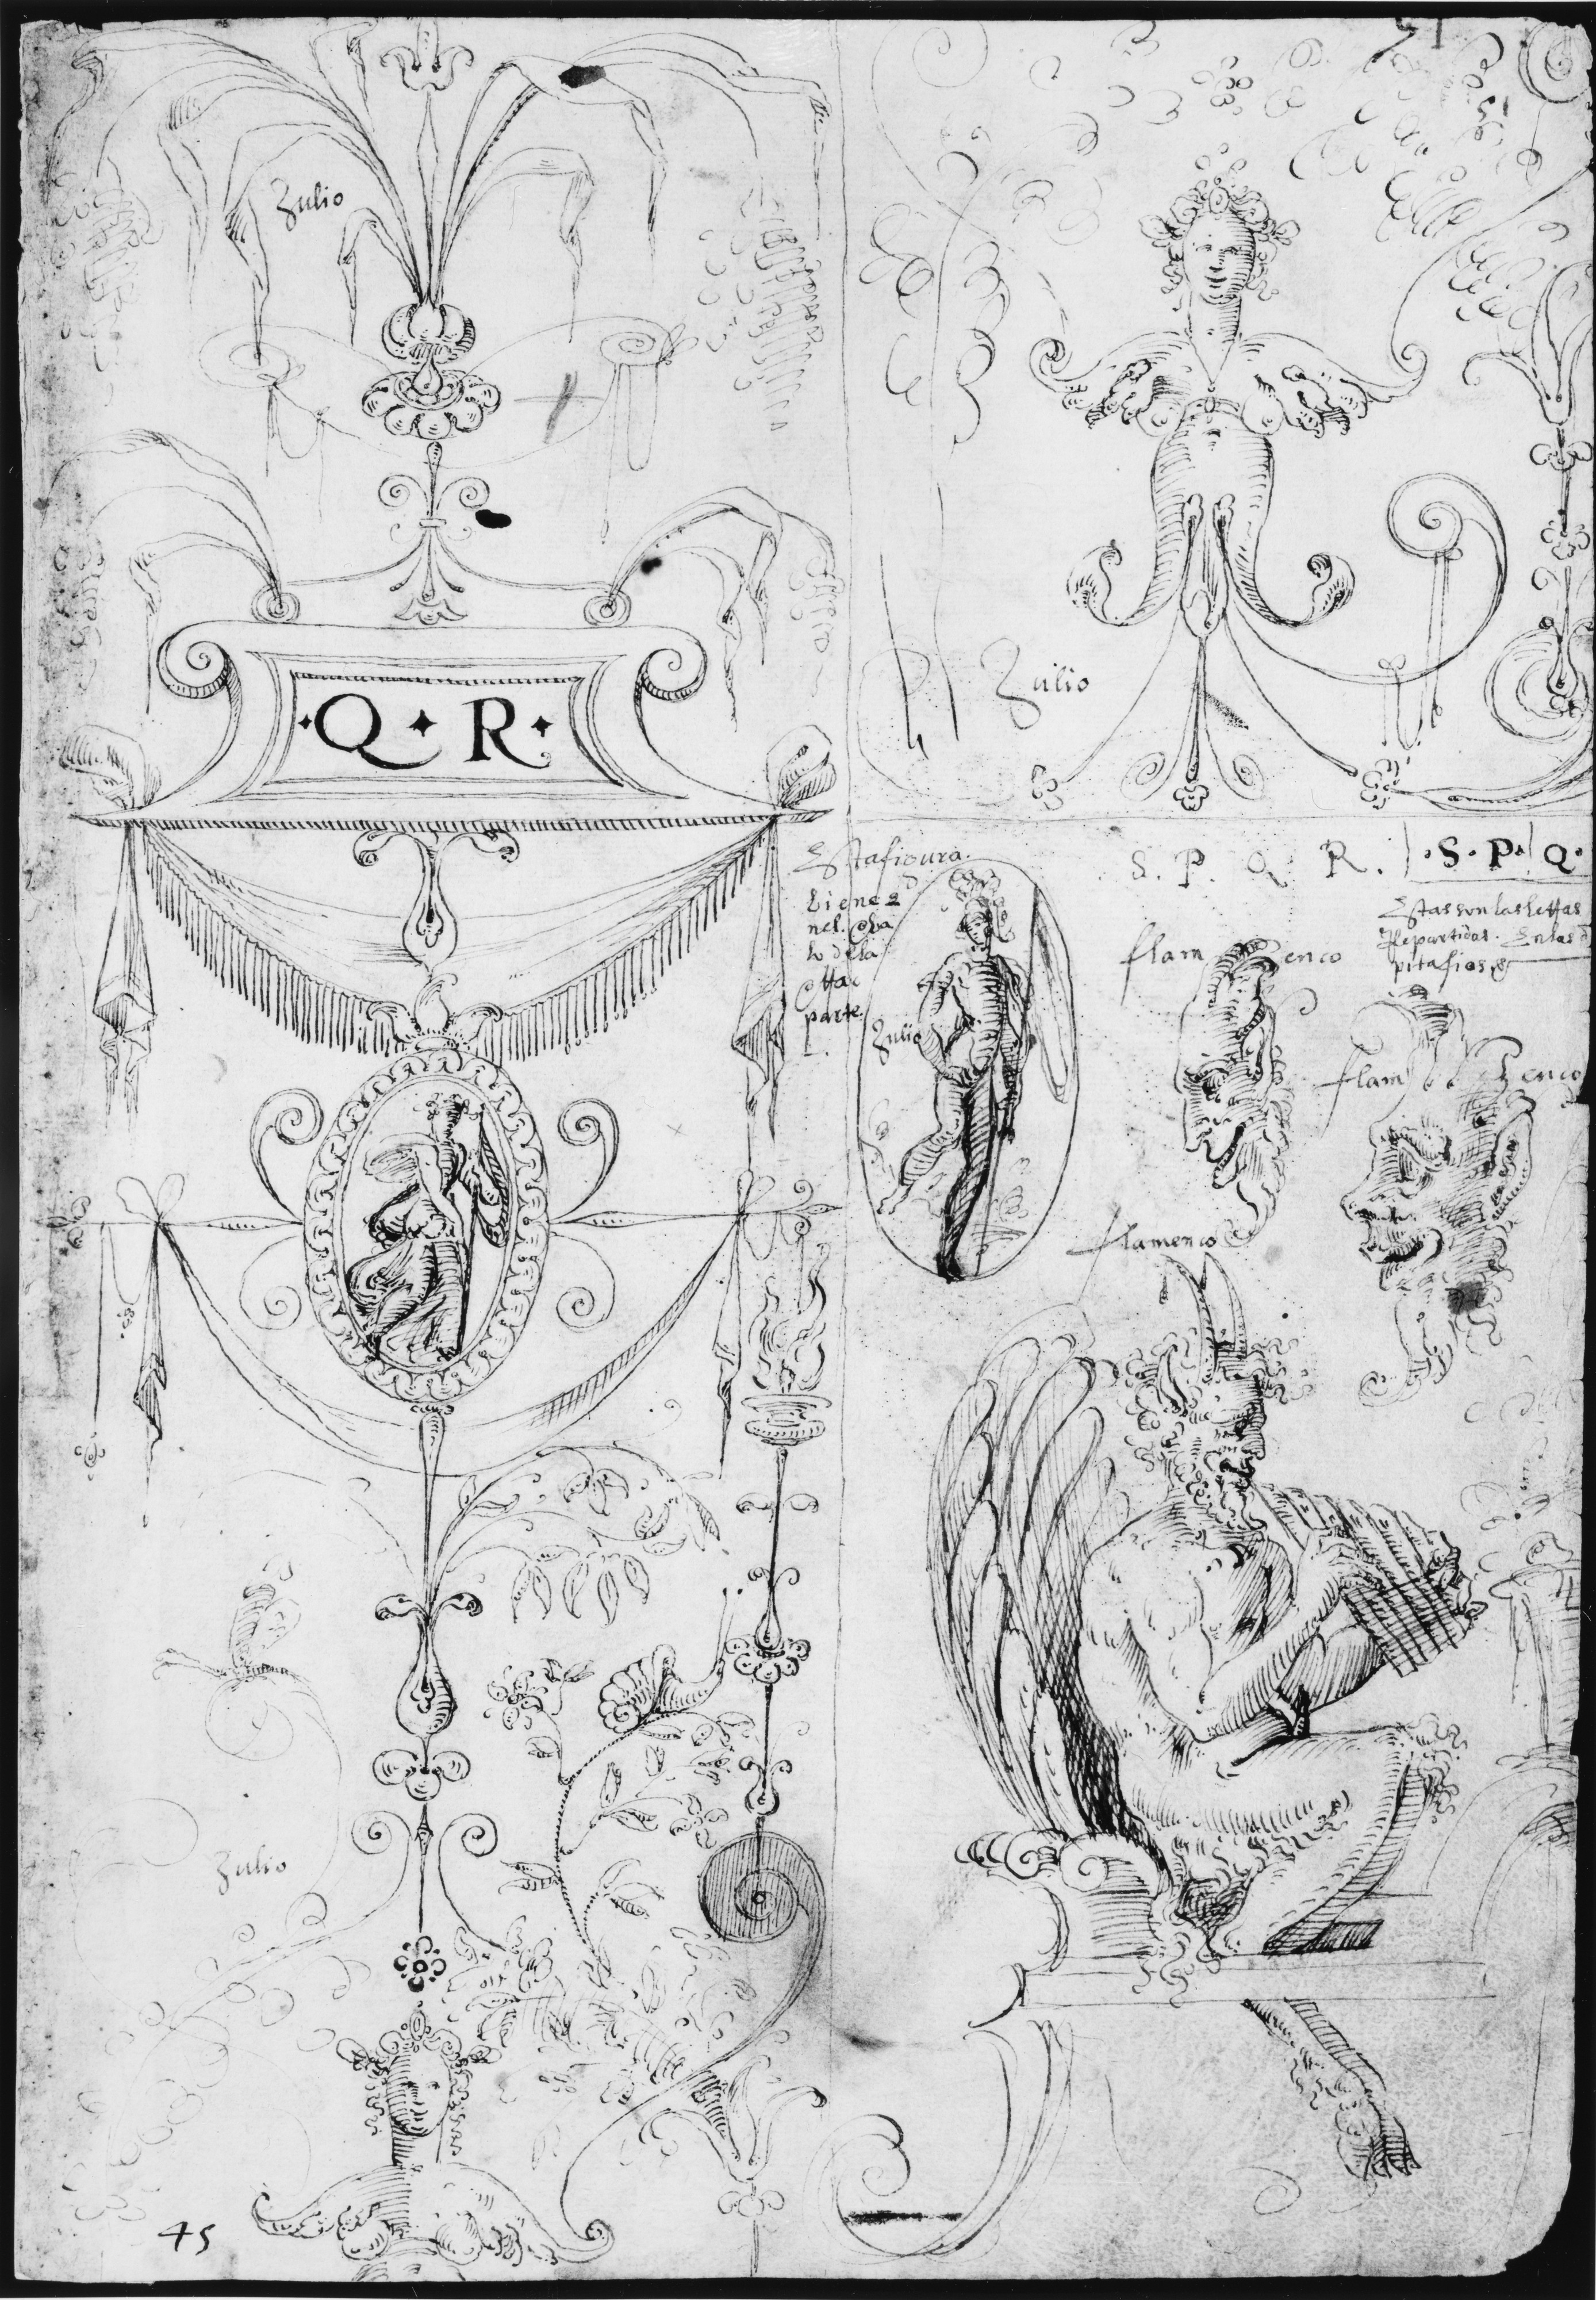 71
Zulio
Zulio
·Q·R·
Esta figura
biene e
nel oba
lo de la
otta
parte.
Zulio
S. P. Q. R.
·S·P·Q·
Estas son las lettas
Repartidas. En las
pitafios
flamenco
flamenco
flamenco
Zulio
45